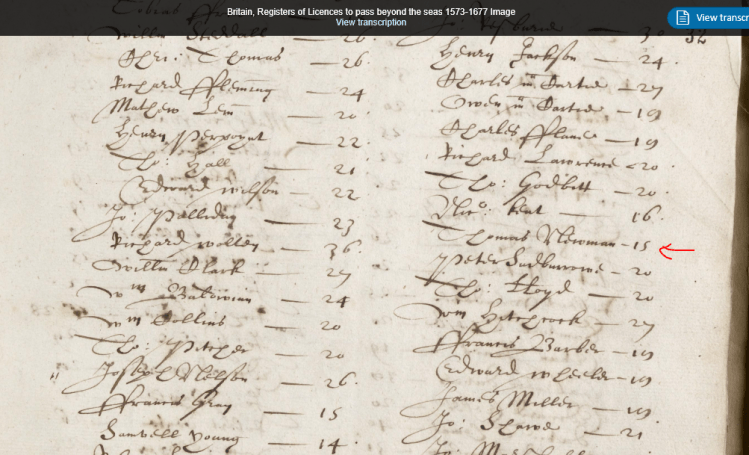 Britain, Registers of Licences to pass beyond the seas 1573-1677 Image
View transcription
View transcr
Tobias
Willm Steddall — 26.
Chri: Thomas — 26.
Richard ffleming — 24
Mathew Lem — 20
Henry Perpoynt — 22.
Tho: Hall — 21
Edward wilson — 22
Jo: Palliday — 23
Richard wolley — 36.
Willm Clark — 29
Wm Baldwin — 24
Wm Collins — 20
Tho: Pitcher — 20
Joseph Nelson — 26.
ffrancis Gray — 15
Samuell Young — 14.
Jo: 30. 32
Henry Jackson — 24.
Charles — 29
Owen — 19
Charles — 19
Richard Lawrence — 20.
Tho: Godbett — 20.
Nico: Kent — 16.
Thomas Newman — 15
Peter Sudburrowe — 20
Tho: Lloyd — 20
Wm Hitchcock — 29
ffrancis Barber — 19
Edward wheeler — 19
James Miller — 19.
Jo: — 21
Jo: